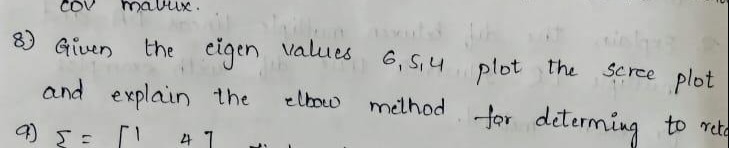 cov matrix.
8) Given the eigen values 6, 5, 4 plot the scree plot
and explain the elbow method for determing to reta
9) Σ = [1 4]